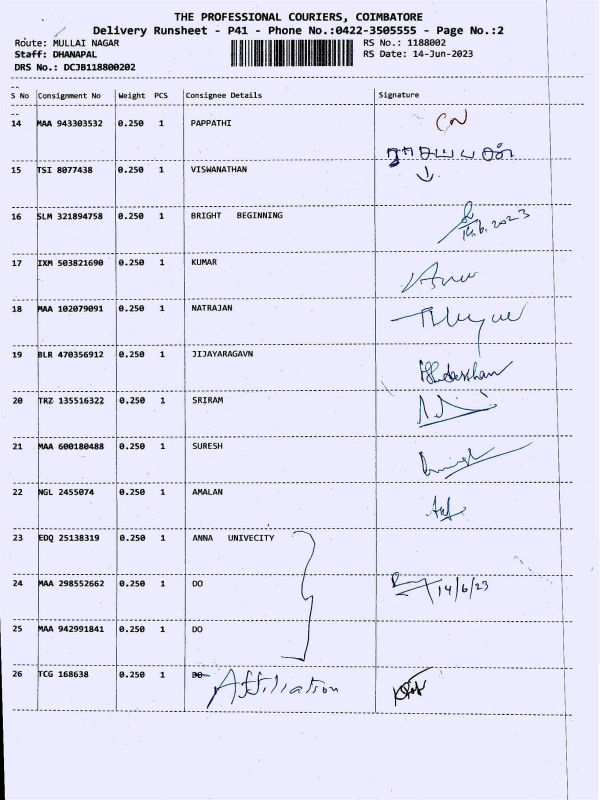 THE PROFESSIONAL COURIERS, COIMBATORE
Delivery Runsheet - P41 - Phone No.:0422-3505555 - Page No.:2
Route: MULLAI NAGAR RS No.: 1188002
Staff: DHANAPAL RS Date: 14-Jun-2023
DRS No.: DCJB118800202
S No Consignment No Weight PCS Consignee Details Signature
14 MAA 943303532 0.250 1 PAPPATHI
15 TSI 8077438 0.250 1 VISWANATHAN
16 SLM 321894758 0.250 1 BRIGHT BEGINNING
14.6.2023
17 IXM 503821690 0.250 1 KUMAR
18 MAA 102079091 0.250 1 NATRAJAN
19 BLR 470356912 0.250 1 JIJAYARAGAVN
20 TRZ 135516322 0.250 1 SRIRAM
21 MAA 600180488 0.250 1 SURESH
22 NGL 2455074 0.250 1 AMALAN
23 EDQ 25138319 0.250 1 ANNA UNIVECITY
24 MAA 298552662 0.250 1 DO 14/6/23
25 MAA 942991841 0.250 1 DO
26 TCG 168638 0.250 1 DO Affiliation